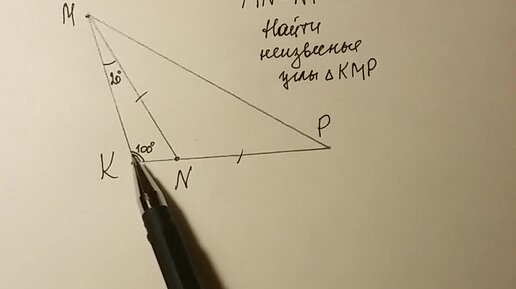 MN = NP
Найти
неизвесные
углы △ KMP
M
20°
P
100°
K
N